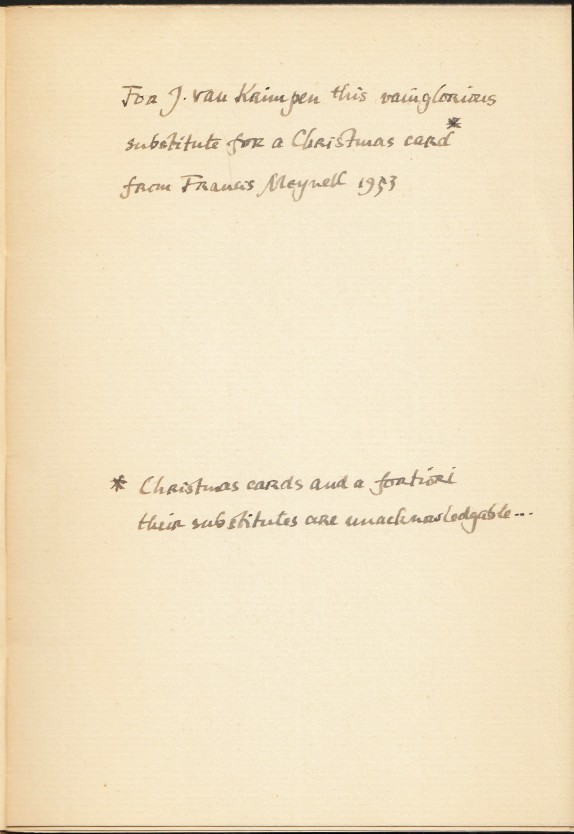 For J. van Krimpen this vainglorious
substitute for a Christmas card*
from Francis Meynell 1953
* Christmas cards and a fortiori
their substitutes are unacknowledgable...